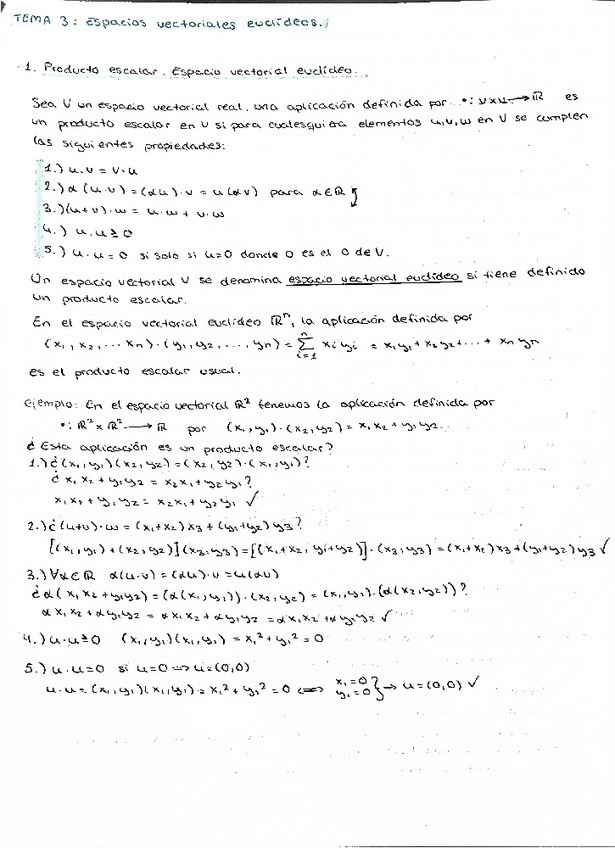 TEMA 3: Espacios vectoriales euclídeos.
1. Producto escalar. Espacio vectorial euclídeo.
Sea V un espacio vectorial real, una aplicación definida por •: V×V→ℝ es
un producto escalar en V si para cualesquiera elementos u,v,w en V se cumplen
las siguientes propiedades:
1.) u·v = v·u
2.) α(u·v) = (αu)·v = u(αv) para α∈ℝ
3.) (u+v)·w = u·w + v·w
4.) u.u ≥ 0
5.) u.u = 0 si solo si u=0 donde 0 es el 0 de V.
Un espacio vectorial V se denomina espacio vectorial euclídeo si tiene definido
un producto escalar.
En el espacio vectorial euclídeo ℝⁿ, la aplicación definida por
(x₁, x₂, ... xₙ)·(y₁, y₂, ..., yₙ) = ∑ᵢ₌₁ⁿ xᵢyᵢ = x₁y₁ + x₂y₂ + ... + xₙyₙ
es el producto escalar usual.
Ejemplo: En el espacio vectorial ℝ² tenemos la aplicación definida por
•: ℝ² × ℝ² → ℝ por (x₁, y₁)·(x₂, y₂) = x₁x₂ + y₁y₂.
¿Esta aplicación es un producto escalar?
1.) ¿(x₁, y₁)(x₂, y₂) = (x₂, y₂)·(x₁, y₁)?
¿x₁x₂ + y₁y₂ = x₂x₁ + y₂y₁?
x₁x₂ + y₁y₂ = x₂x₁ + y₂y₁ ✓
2.) ¿(u+v)·w = (x₁+x₂)x₃ + (y₁+y₂)y₃?
[(x₁, y₁) + (x₂, y₂)](x₃, y₃) = [(x₁+x₂, y₁+y₂)]·(x₃, y₃) = (x₁+x₂)x₃ + (y₁+y₂)y₃ ✓
3.) ∀α∈ℝ α(u·v) = (αu)·v = u(αv)
¿α(x₁x₂ + y₁y₂) = (α(x₁, y₁))·(x₂, y₂) = (x₁, y₁)·(α(x₂, y₂))?
αx₁x₂ + αy₁y₂ = αx₁x₂ + αy₁y₂ = αx₁x₂ + αy₁y₂ ✓
4.) u·u ≥ 0 (x₁, y₁)(x₁, y₁) = x₁² + y₁² = 0
5.) u·u = 0 si u=0 → u=(0,0)
u·u = (x₁, y₁)(x₁, y₁) = x₁² + y₁² = 0 ⟺ x₁=0 y₁=0 } → u=(0,0) ✓